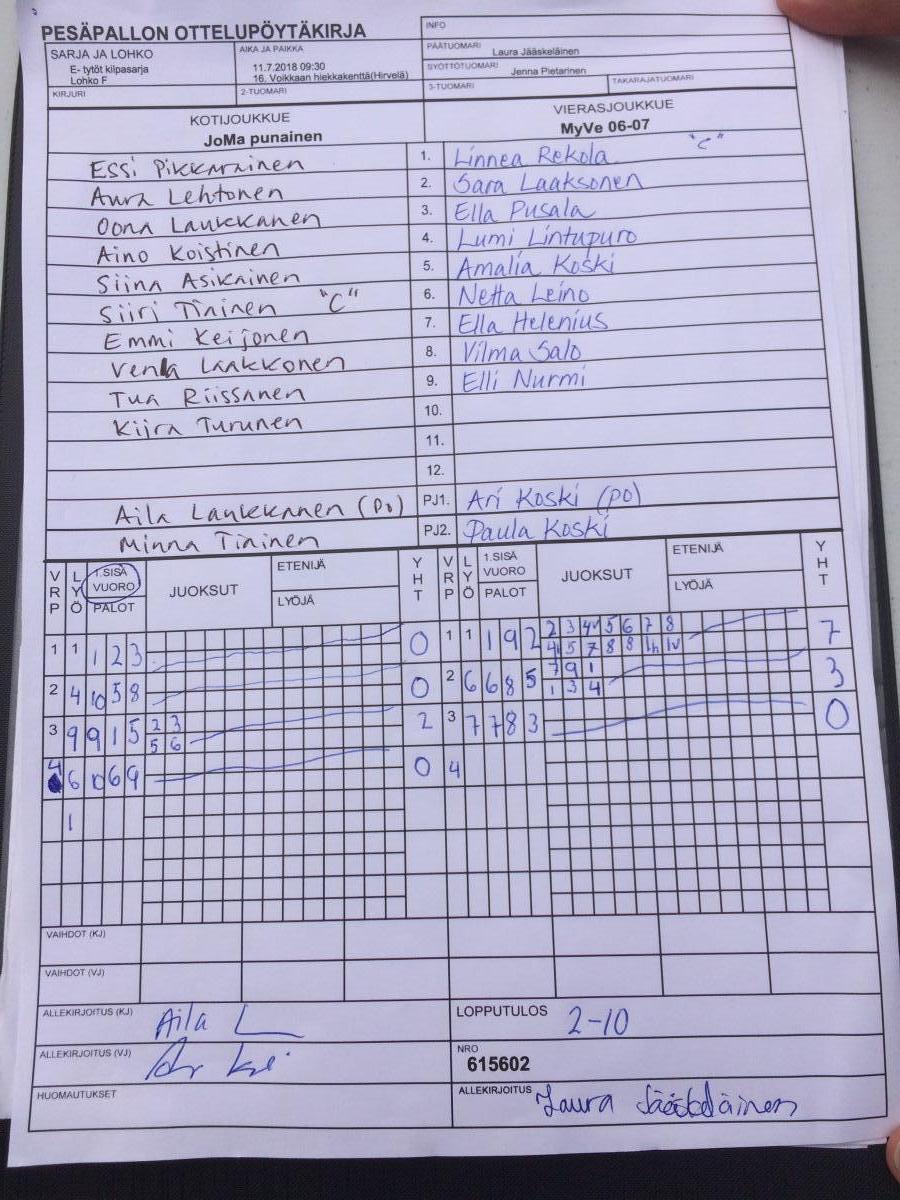 PESÄPALLON OTTELUPÖYTÄKIRJA
INFO
SARJA JA LOHKO
E- tytöt kilpasarja
Lohko F
AIKA JA PAIKKA
11.7.2018 09:30
16. Voikkaan hiekkakenttä(Hirvelä)
PÄÄTUOMARI Laura Jääskeläinen
SYÖTTÖTUOMARI Jenna Pietarinen
KIRJURI
2-TUOMARI
3-TUOMARI
TAKARAJATUOMARI
KOTIJOUKKUE
JoMa punainen
VIERASJOUKKUE
MyVe 06-07
Essi Pikkarainen 1. Linnea Rekola "C"
Aura Lehtonen 2. Sara Laaksonen
Oona Laukkanen 3. Ella Pusala
Aino Koistinen 4. Lumi Lintupuro
Siina Asikainen 5. Amalia Koski
Siiri Tiainen "C" 6. Netta Leino
Emmi Keijonen 7. Ella Helenius
Venla Laakkonen 8. Vilma Salo
Tua Riissanen 9. Elli Nurmi
Kiira Turunen 10.
11.
12.
Aila Laukkanen (po) PJ1. Ari Koski (po)
Minna Tiainen PJ2. Paula Koski
VRP LYÖ 1.SISÄ VUORO PALOT JUOKSUT ETENIJÄ LYÖJÄ YHT VRP LYÖ 1.SISÄ VUORO PALOT JUOKSUT ETENIJÄ LYÖJÄ YHT
1 1 1 2 3 0 1 1 1 9 2 2 3 4 5 6 7 8 7
4 5 7 8 8
2 4 10 5 8 0 2 6 6 8 5 7 9 1 3
1 3 4
3 9 9 1 5 2 3 2 3 7 7 8 3 0
5 6
4 6 10 6 9 0 4
1
VAIHDOT (KJ)
VAIHDOT (VJ)
ALLEKIRJOITUS (KJ) Aila L
LOPPUTULOS 2-10
ALLEKIRJOITUS (VJ)
NRO
615602
HUOMAUTUKSET
ALLEKIRJOITUS Laura Jääskeläinen